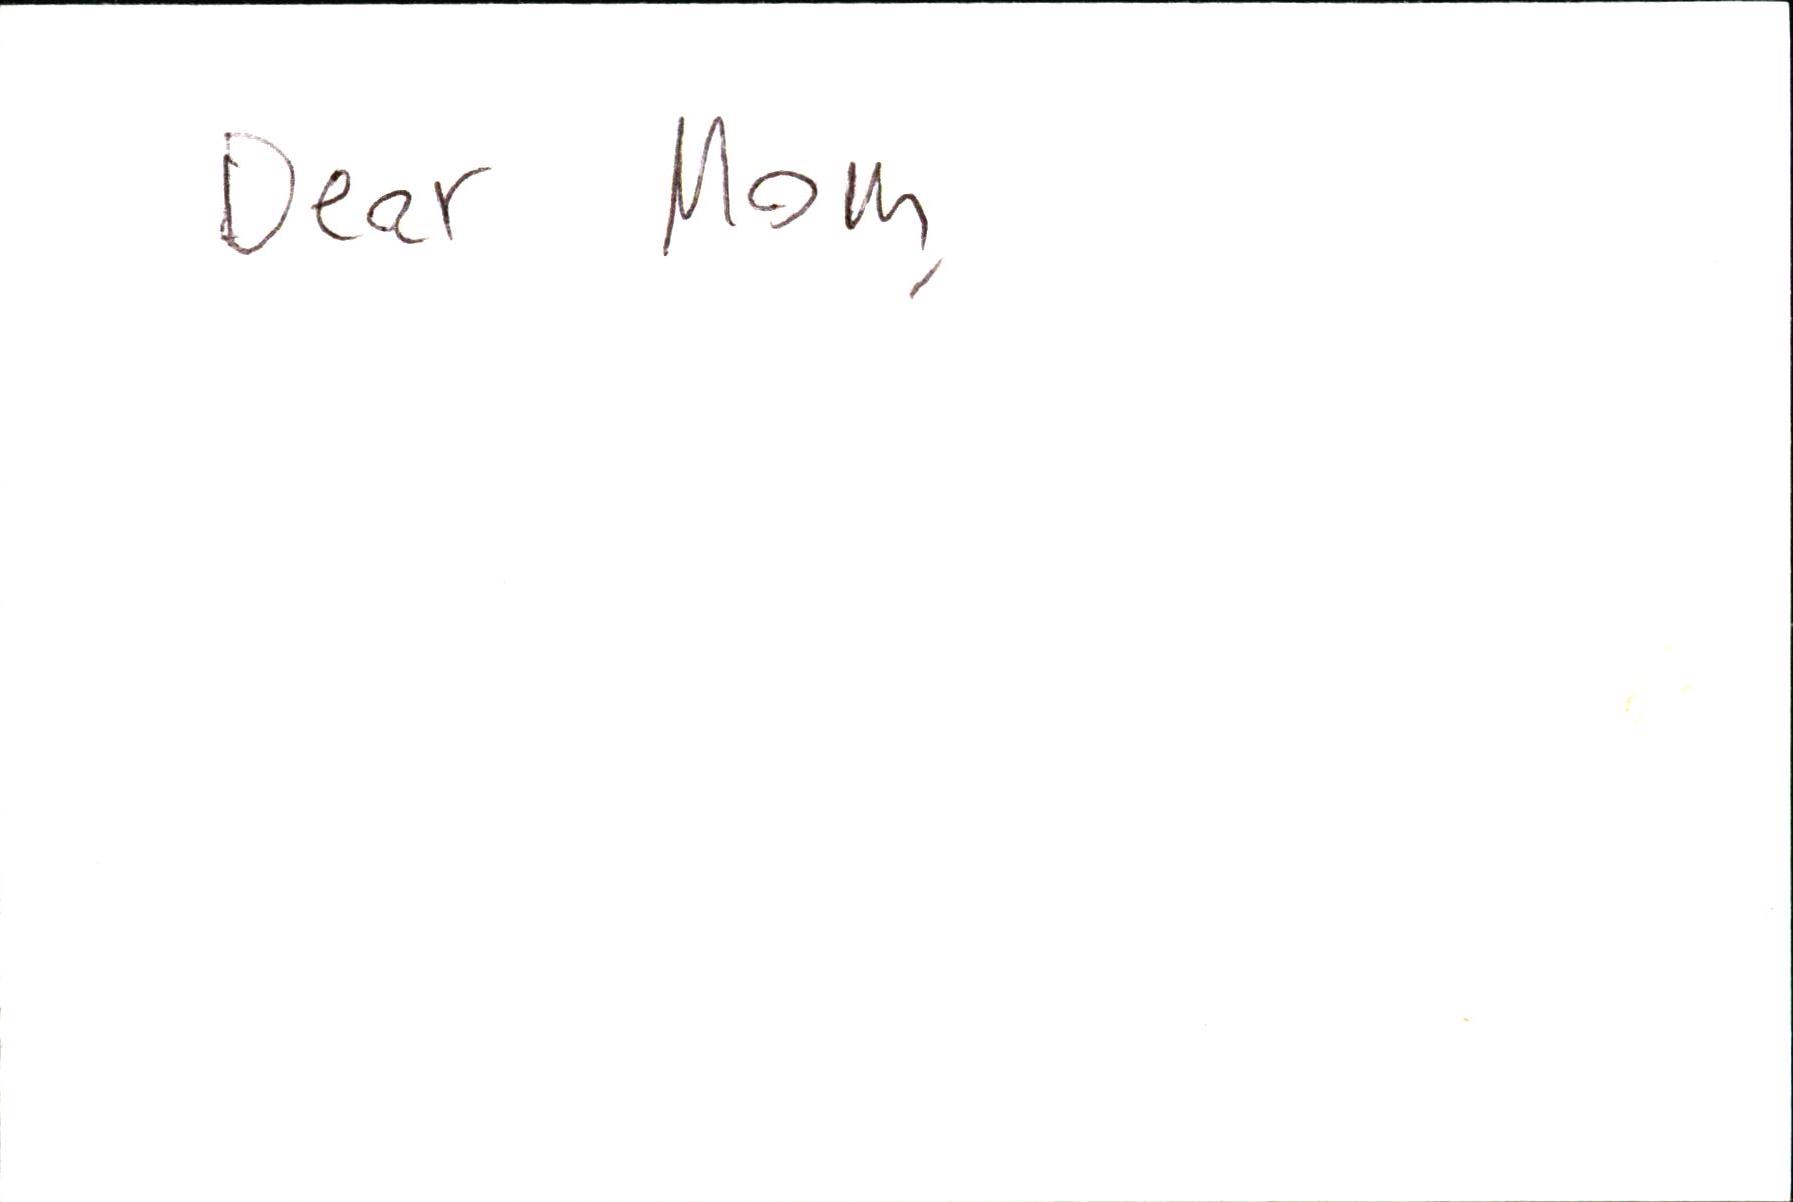 Dear Mom,